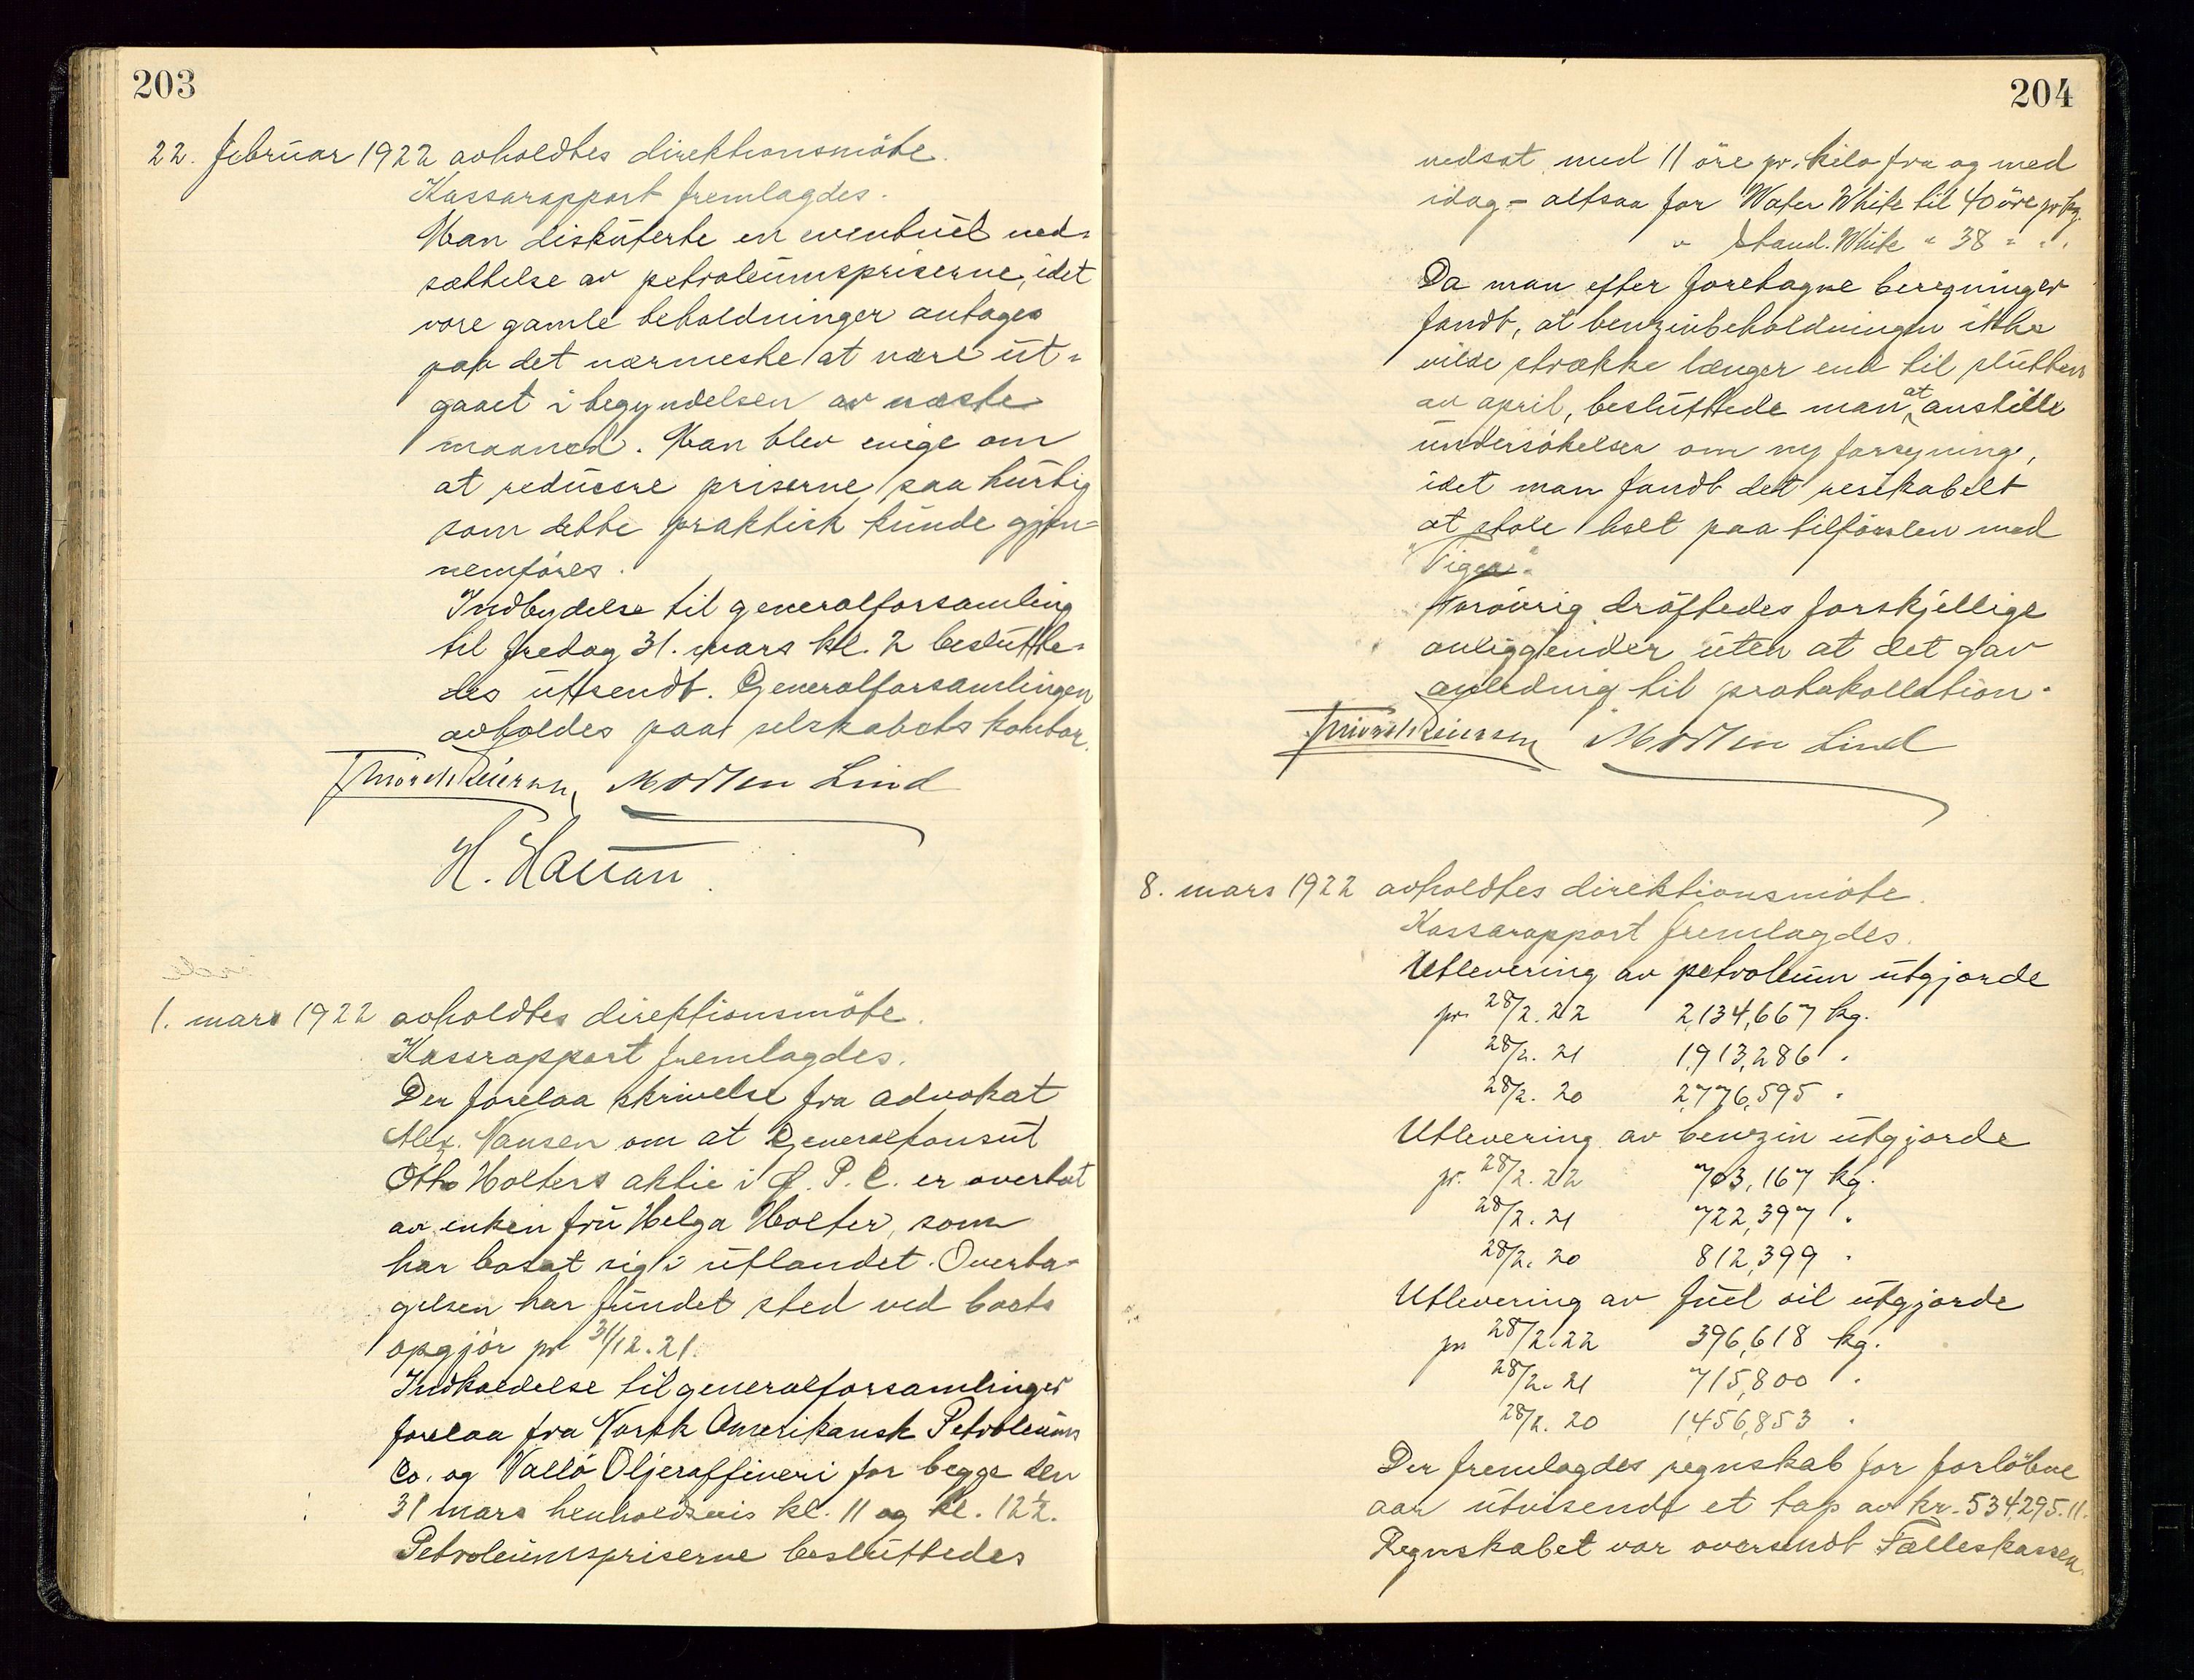 203
22. februar 1922 avholdtes direktionsmöte.
Kassarapport fremlagdes.
Man diskuterte en eventuel ned=
sættelse av petroleumspriserne, idet
vore gamle beholdninger antages
paa det nærmeste at være ut=
gaaet i begyndelsen av næste
maaned. Man blev enige om
at reducere priserne saa hurtig
som dette praktisk kunde gjen=
nemföres.
Indbydelse til generalforsamling
til fredag 31. mars kl. 2 beslutte=
des utsendt. Generalforsamlingen
avholdes paa selskabets kontor.
Morten Lind
1. mars 1922 avholdtes direktionsmöte.
Kassrapport fremlagdes.
Der forelaa skrivelse fra advokat
Alex. Nansen om at Generalkonsul
Otto Holters aktie i P. C. er overtat
av enken fru Helga Holter, som
har bosat sig i utlandet. Overta=
gelsen har fundet sted ved boets
opgjör pr 31/12.21.
Indkaldelse til generalforsamlinger
forelaa fra Norsk Amerikansk Petroleums
Co. og Vallö Oljeraffineri for begge den
31 mars henholdsvis kl. 11 og kl. 12½.
Petroleumspriserne besluttedes
204
nedsat med 11 öre pr. kilo fra og med
idag - altsaa for Water White til 40 öre pr kg.
" Stand. White " 38 " " .
Da man efter foretagne beregninger
fandt, at benzinbeholdningen ikke
vilde strække længer end til slutten
av april, besluttede man at anstille
undersökelser om ny forsyning,
idet man fandt det resikabelt
at stole helt paa tilförslen med
"Tiger".
Forövrig dröftedes forskjellige
anliggender uten at det gav
anledning til protokollation.
Morten Lind
8. mars 1922 avholdtes direktionsmöte.
Kassarapport fremlagdes.
Utlevering av petroleum utgjorde
pr. 28/2. 22 2,134,667 kg.
28/2. 21 1,913,286 "
28/2. 20 2,776,595 "
Utlevering av benzin utgjorde
pr. 28/2. 22 703,167 kg.
28/2. 21 722,397 "
28/2. 20 812,399 "
Utlevering av fuel oil utgjorde
pr 28/2. 22 396,618 kg.
28/2. 21 715,800 "
28/2. 20 1,456,853 "
Der fremlagdes regnskab for forlöbne
aar utvisende et tap av kr. 534,295.11.
Regnskabet var oversendt Fælleskassen.